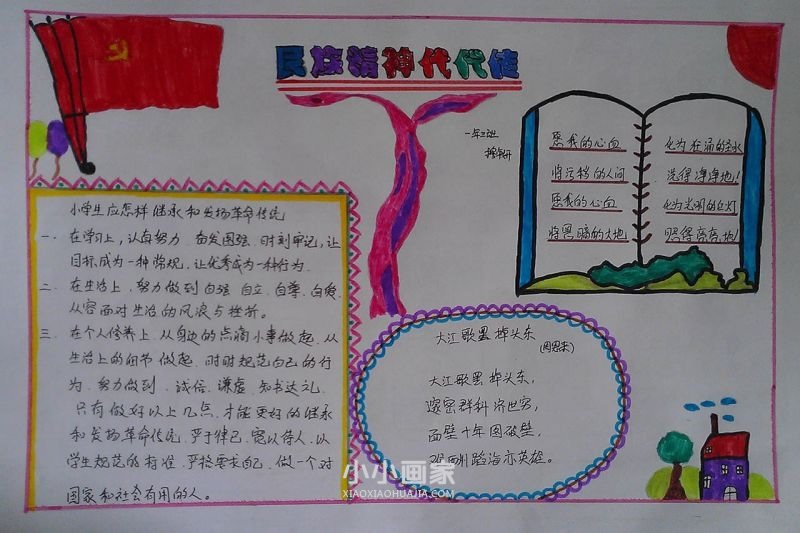 民族精神代代传
一年三班
小学生应怎样继承和发扬革命传统
一、在学习上，认真努力、奋发图强、时刻牢记，让
目标成为一种常规，让优秀成为一种行为.
二、在生活上，努力做到自强、自立、自尊、自爱，
从容面对生活的风浪与挫折。
三、在个人修养上，从身边的点滴小事做起，从
生活上的细节做起，时时规范自己的行
为，努力做到、诚信、谦虚、知书达礼.
只有做好以上几点，才能更好的继承
和发扬革命传统，严于律己，宽以待人，以
学生规范的标准，严格要求自己，做一个对
国家和社会有用的人。
愿我的心血
将污秽的人间
愿我的心血
将黑暗的大地
化为狂涌的圣水
洗得净净地！
化为光明的红灯
照得亮亮地！
大江歌罢掉头东
(周恩来)
大江歌罢掉头东，
邃密群科济世穷，
面壁十年图破壁，
难酬蹈海亦英雄。
小小画家
XIAOXIAOHUAJIA.COM